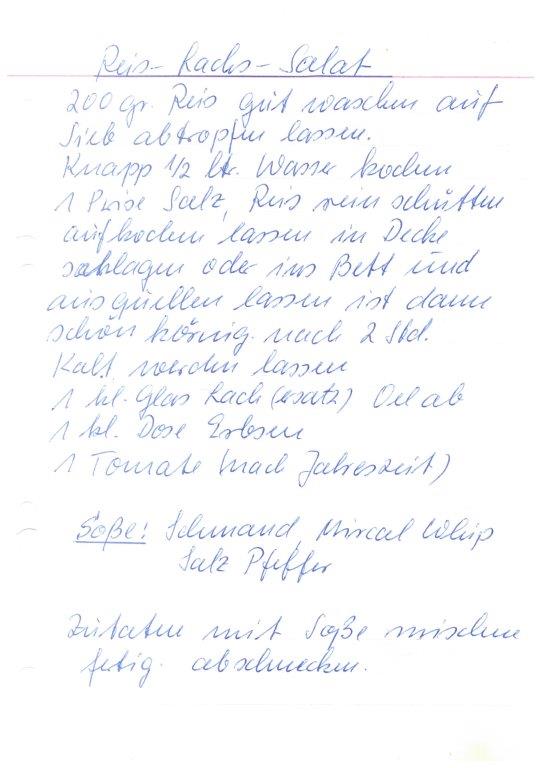 Reis-Lachs-Salat
200 gr. Reis gut waschen auf
Sieb abtropfen lassen.
Knapp 1/2 ltr. Wasser kochen
1 Prise Salz, Reis rein schütten
aufkochen lassen in Decke
schlagen oder ins Bett und
ausquellen lassen ist dann
schön körnig. nach 2 Std.
Kalt werden lassen
1 kl. Glas Lachs (ersatz) Oel ab
1 kl. Dose Erbsen
1 Tomate (nach Jahreszeit)
Soße: Schmand, Miracel Whip
Salz Pfeffer
Zutaten mit Soße mischen
fertig. abschmecken.